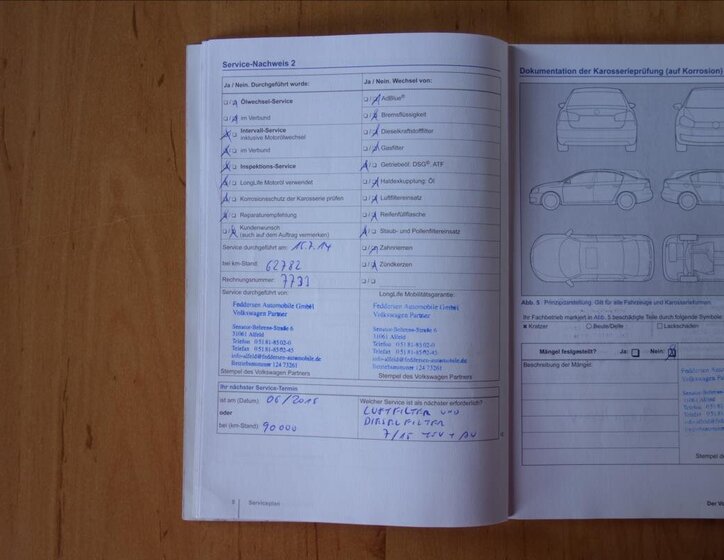 Service-Nachweis 2
Ja / Nein. Durchgeführt wurde:
Ölwechsel-Service
im Verbund
Intervall-Service
inklusive Motorölwechsel
im Verbund
Inspektions-Service
LongLife Motoröl verwendet
Korrosionsschutz der Karosserie prüfen
Reparaturempfehlung
Kundenwunsch
(auch auf dem Auftrag vermerken)
Service durchgeführt am: 15.7.14
bei km-Stand: 62782
Rechnungsnummer: 7731
Ja / Nein. Wechsel von:
AdBlue®
Bremsflüssigkeit
Dieselkraftstofffilter
Gasfilter
Getriebeöl: DSG®, ATF
Haldexkupplung: Öl
Luftfiltereinsatz
Reifenfüllflasche
Staub- und Pollenfiltereinsatz
Zahnriemen
Zündkerzen
Service durchgeführt von:
Feddersen Automobile GmbH
Volkswagen Partner
Senator-Behrens-Straße 6
31061 Alfeld
Telefon 05181-8502-0
Telefax 05181-8502-45
info-alfeld@feddersen-automobile.de
Betriebsnummer 124 73261
Stempel des Volkswagen Partners
LongLife Mobilitätsgarantie:
Feddersen Automobile GmbH
Volkswagen Partner
Senator-Behrens-Straße 6
31061 Alfeld
Telefon 05181-8502-0
Telefax 05181-8502-45
info-alfeld@feddersen-automobile.de
Betriebsnummer 124 73261
Stempel des Volkswagen Partners
Ihr nächster Service-Termin
ist am (Datum): 06/2015
oder
bei (km-Stand): 90000
Welcher Service ist als nächster erforderlich?
LUFTFILTER UND
DIESELFILTER
7/15 TÜV + AU
Serviceplan
Dokumentation der Karosserieprüfung (auf Korrosion)
Abb. 5 Prinzipdarstellung. Gilt für alle Fahrzeuge und Karosserieformen.
Ihr Fachbetrieb markiert in Abb. 5 beschädigte Teile durch folgende Symbole
Kratzer
Beule/Delle
Lackschäden
Mängel festgestellt? Ja: Nein:
Beschreibung der Mängel:
Stempel des